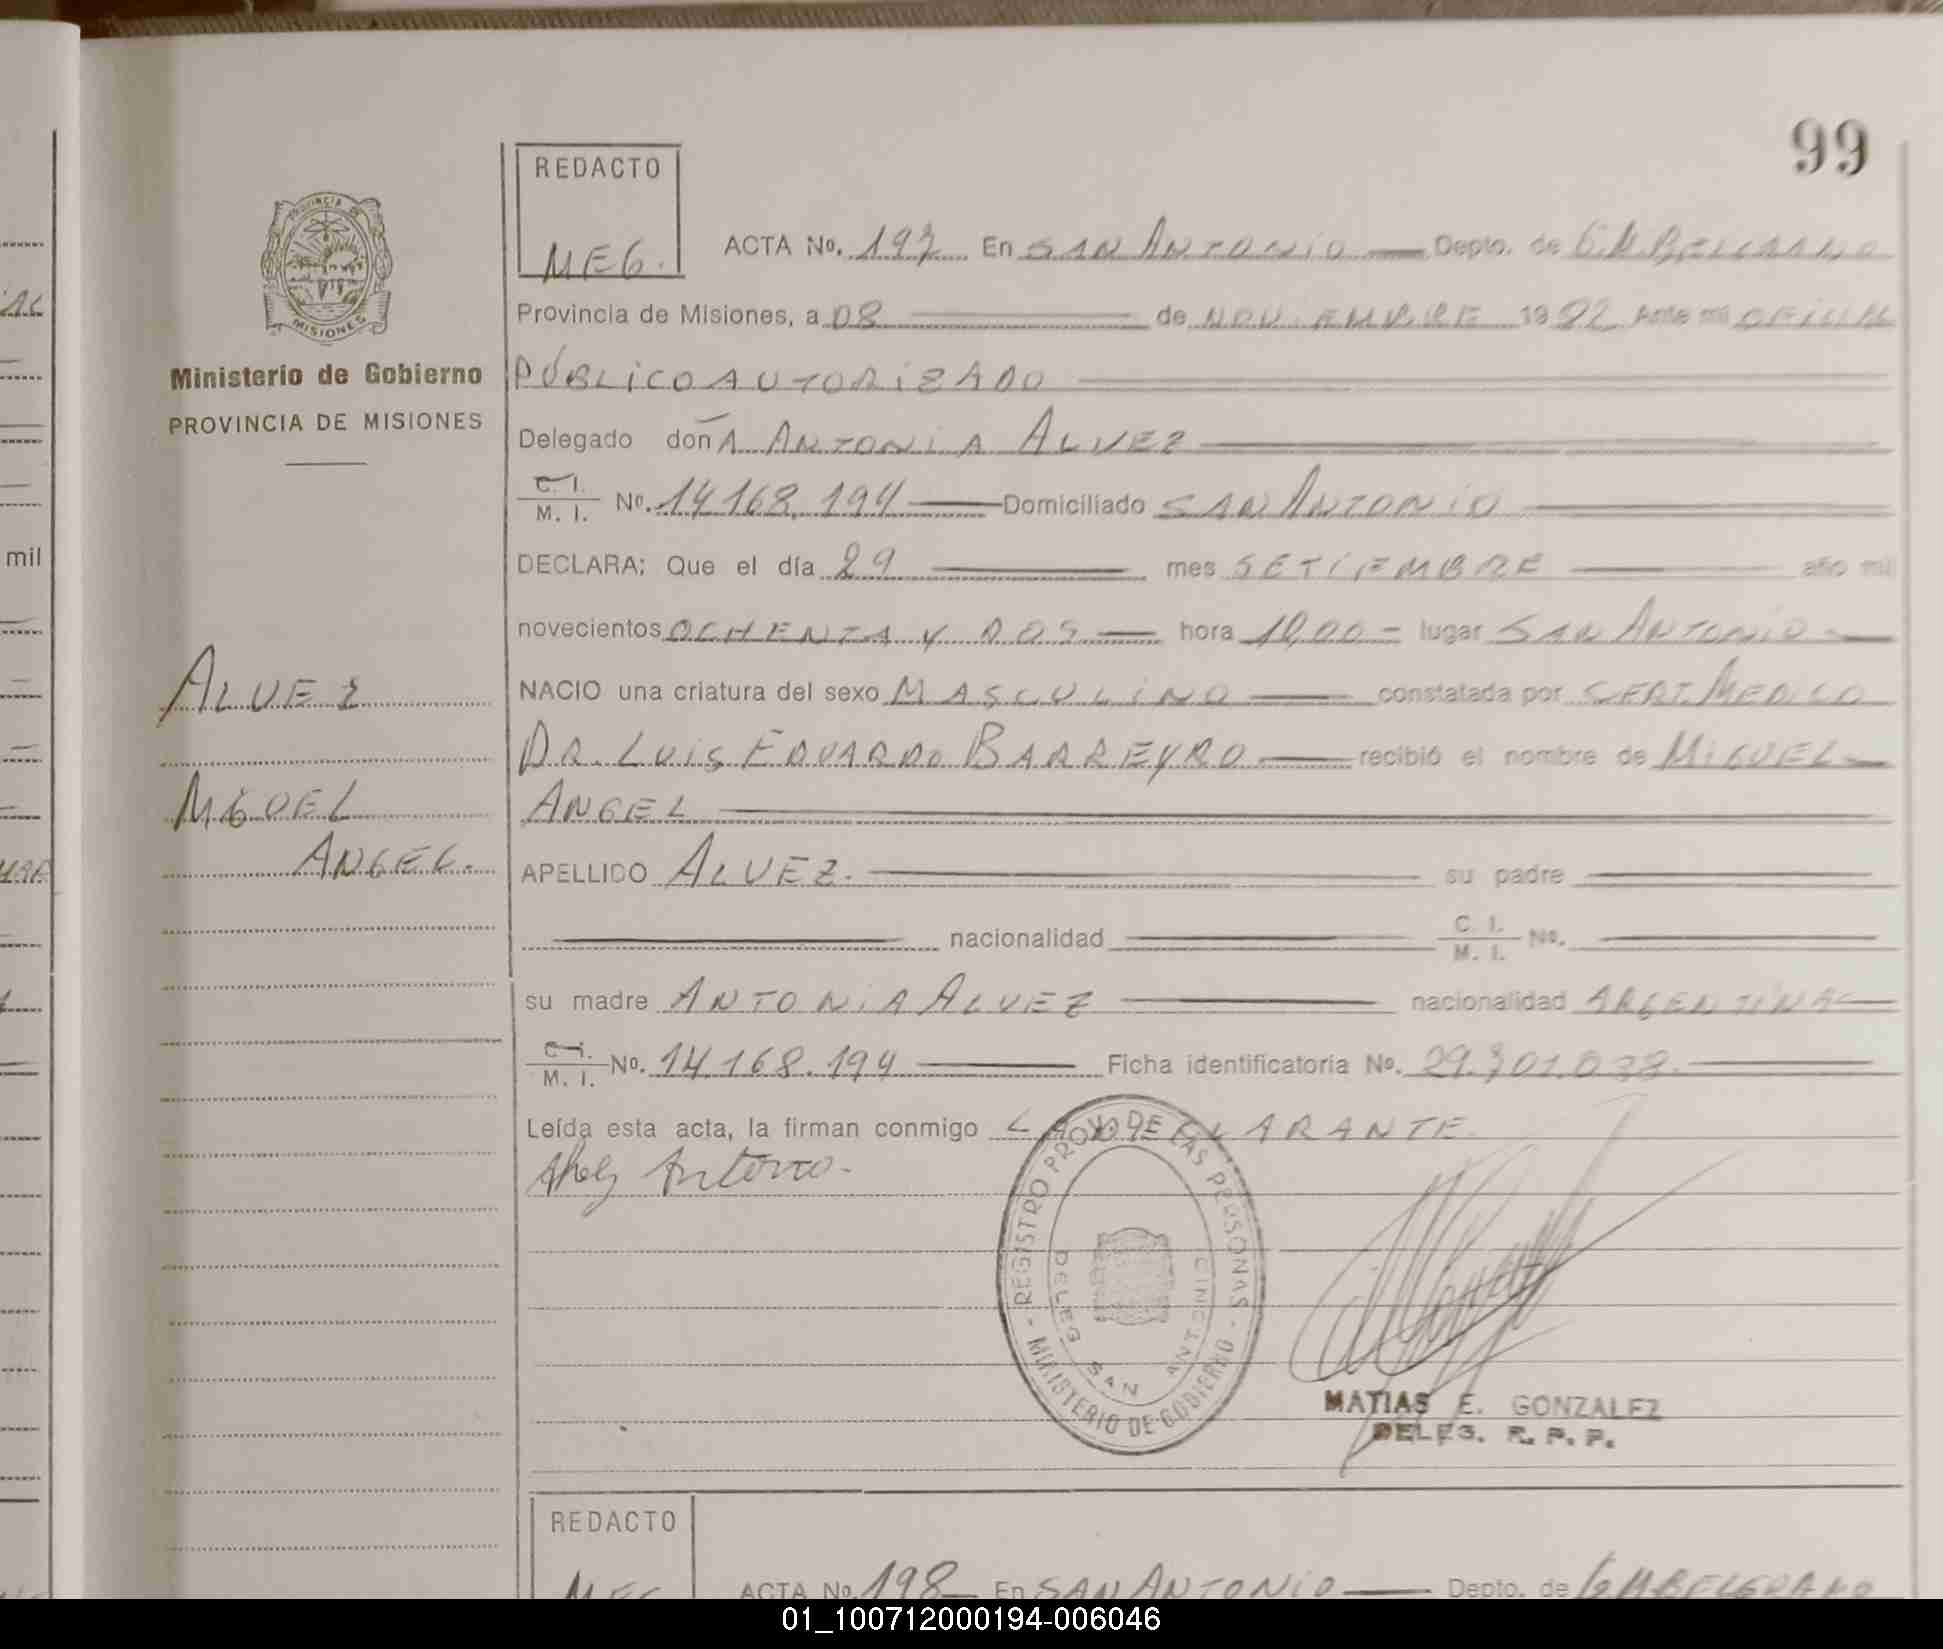 99
REDACTO
MEG.
ACTA No. 197 En SAN ANTONIO Depto. de G.M.BELGRANO
PROVINCIA DE
MISIONES
Provincia de Misiones, a 08 de NOVIEMBRE 1982 Ante mi OFICIAL
Ministerio de Gobierno
PROVINCIA DE MISIONES
PÚBLICO AUTORIZADO
Delegado doñA ANTONIA ALVEZ
C. I. / M. I. No. 14.168.194 Domiciliado SAN ANTONIO
DECLARA: Que el día 29 mes SETIEMBRE año mil
novecientos OCHENTA Y DOS hora 10,00 lugar SAN ANTONIO
NACIO una criatura del sexo MASCULINO constatada por CERT.MEDICO
DR. LUIS EDUARDO BARREYRO recibió el nombre de MIGUEL
ANGEL
APELLIDO ALVEZ. su padre
nacionalidad C. I. / M. I. No.
su madre ANTONIA ALVEZ nacionalidad ARGENTINA
C. I. / M. I. No. 14.168.194 Ficha identificatoria No. 29.701.038.
Leída esta acta, la firman conmigo LA DECLARANTE.
ALVEZ
MIGUEL
ANGEL.
mil
REGISTRO PROV. DE LAS PERSONAS - MINISTERIO DE GOBIERNO -
DELEG SAN ANTONIO
MATIAS E. GONZALEZ
DELEG. R. P. P.
REDACTO
MEG
ACTA No. 198 En SAN ANTONIO Depto. de G.M.BELGRANO
01_100712000194-006046